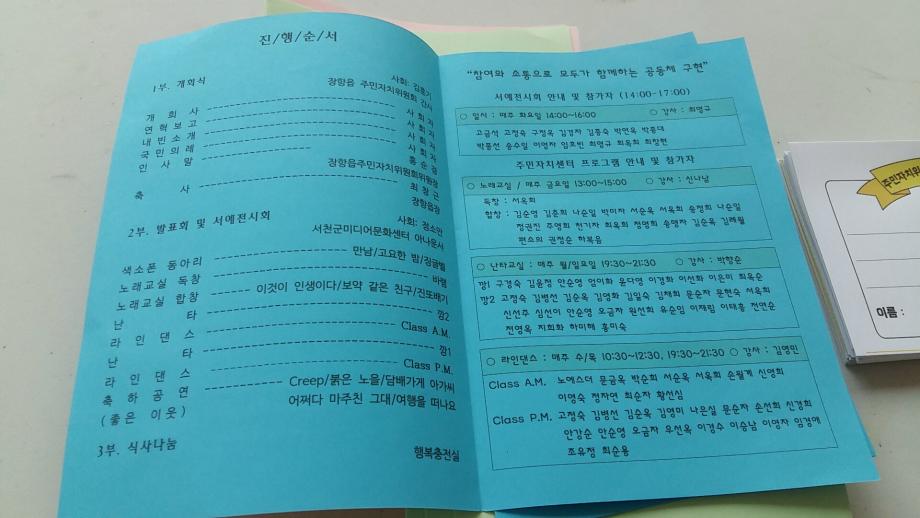 진/행/순/서
1부. 개회식
사회: 김홍기
장항읍 주민자치위원회 간사
개 회 사 사 회 자
연혁보고 사 회 자
내빈소개 사 회 자
국민의례 사 회 자
인 사 말 홍순경
장항읍주민자치위원회위원장
축 사 최창근
장항읍장
2부. 발표회 및 서예전시회
사회: 정소안
서천군미디어문화센터 아나운서
색소폰 동아리 만남/고요한 밤/징글벨
노래교실 독창 바램
노래교실 합창 이것이 인생이다/보약 같은 친구/진또배기
난 타 깜2
라 인 댄 스 Class A.M.
난 타 깜1
라 인 댄 스 Class P.M.
축 하 공 연 Creep/붉은 노을/담배가게 아가씨
(좋은 이웃) 어쩌다 마주친 그대/여행을 떠나요
3부. 식사나눔 행복충전실
"참여와 소통으로 모두가 함께하는 공동체 구현"
서예전시회 안내 및 참가자 (14:00-17:00)
○ 일시 : 매주 화요일 14:00~16:00 ○ 강사 : 최명규
고금석 고정숙 구정옥 김경자 김종숙 박연옥 박종대
박풍선 송수일 이영자 임호빈 최명규 최옥희 최창현
주민자치센터 프로그램 안내 및 참가자
○ 노래교실 / 매주 금요일 13:00~15:00 ○ 강사 : 신나남
독창 : 서옥희
합창 : 김순영 김춘희 나순일 박미자 서순옥 서옥희 송정희 나순일
정권진 주영희 천기자 최옥희 정명희 송명자 김순옥 김례필
편소의 권정순 하복음
○ 난타교실 : 매주 월/일요일 19:30~21:30 ○ 강사 : 박향순
깜1 구경숙 김윤정 안순영 엄이화 윤다영 이경화 이선화 이은미 최옥순
깜2 고정숙 김병선 김순옥 김영화 김일숙 김채희 문순자 문현숙 서옥희
신선주 심선이 안순영 오금자 원선희 유순임 이재림 이태흥 전연순
전영옥 지희화 하미혜 홍미숙
○ 라인댄스 : 매주 수/목 10:30~12:30, 19:30~21:30 ○ 강사 : 김영민
Class A.M. 노예스더 문금옥 박순희 서순옥 서옥희 손필계 신영희
이명숙 정자연 최순자 황선심
Class P.M. 고정숙 김병선 김순옥 김영미 나은실 문순자 손선희 신경희
안강순 안순영 오금자 우선옥 이경수 이승남 이명자 임경애
조유정 최순용
주민자치위
이름 :